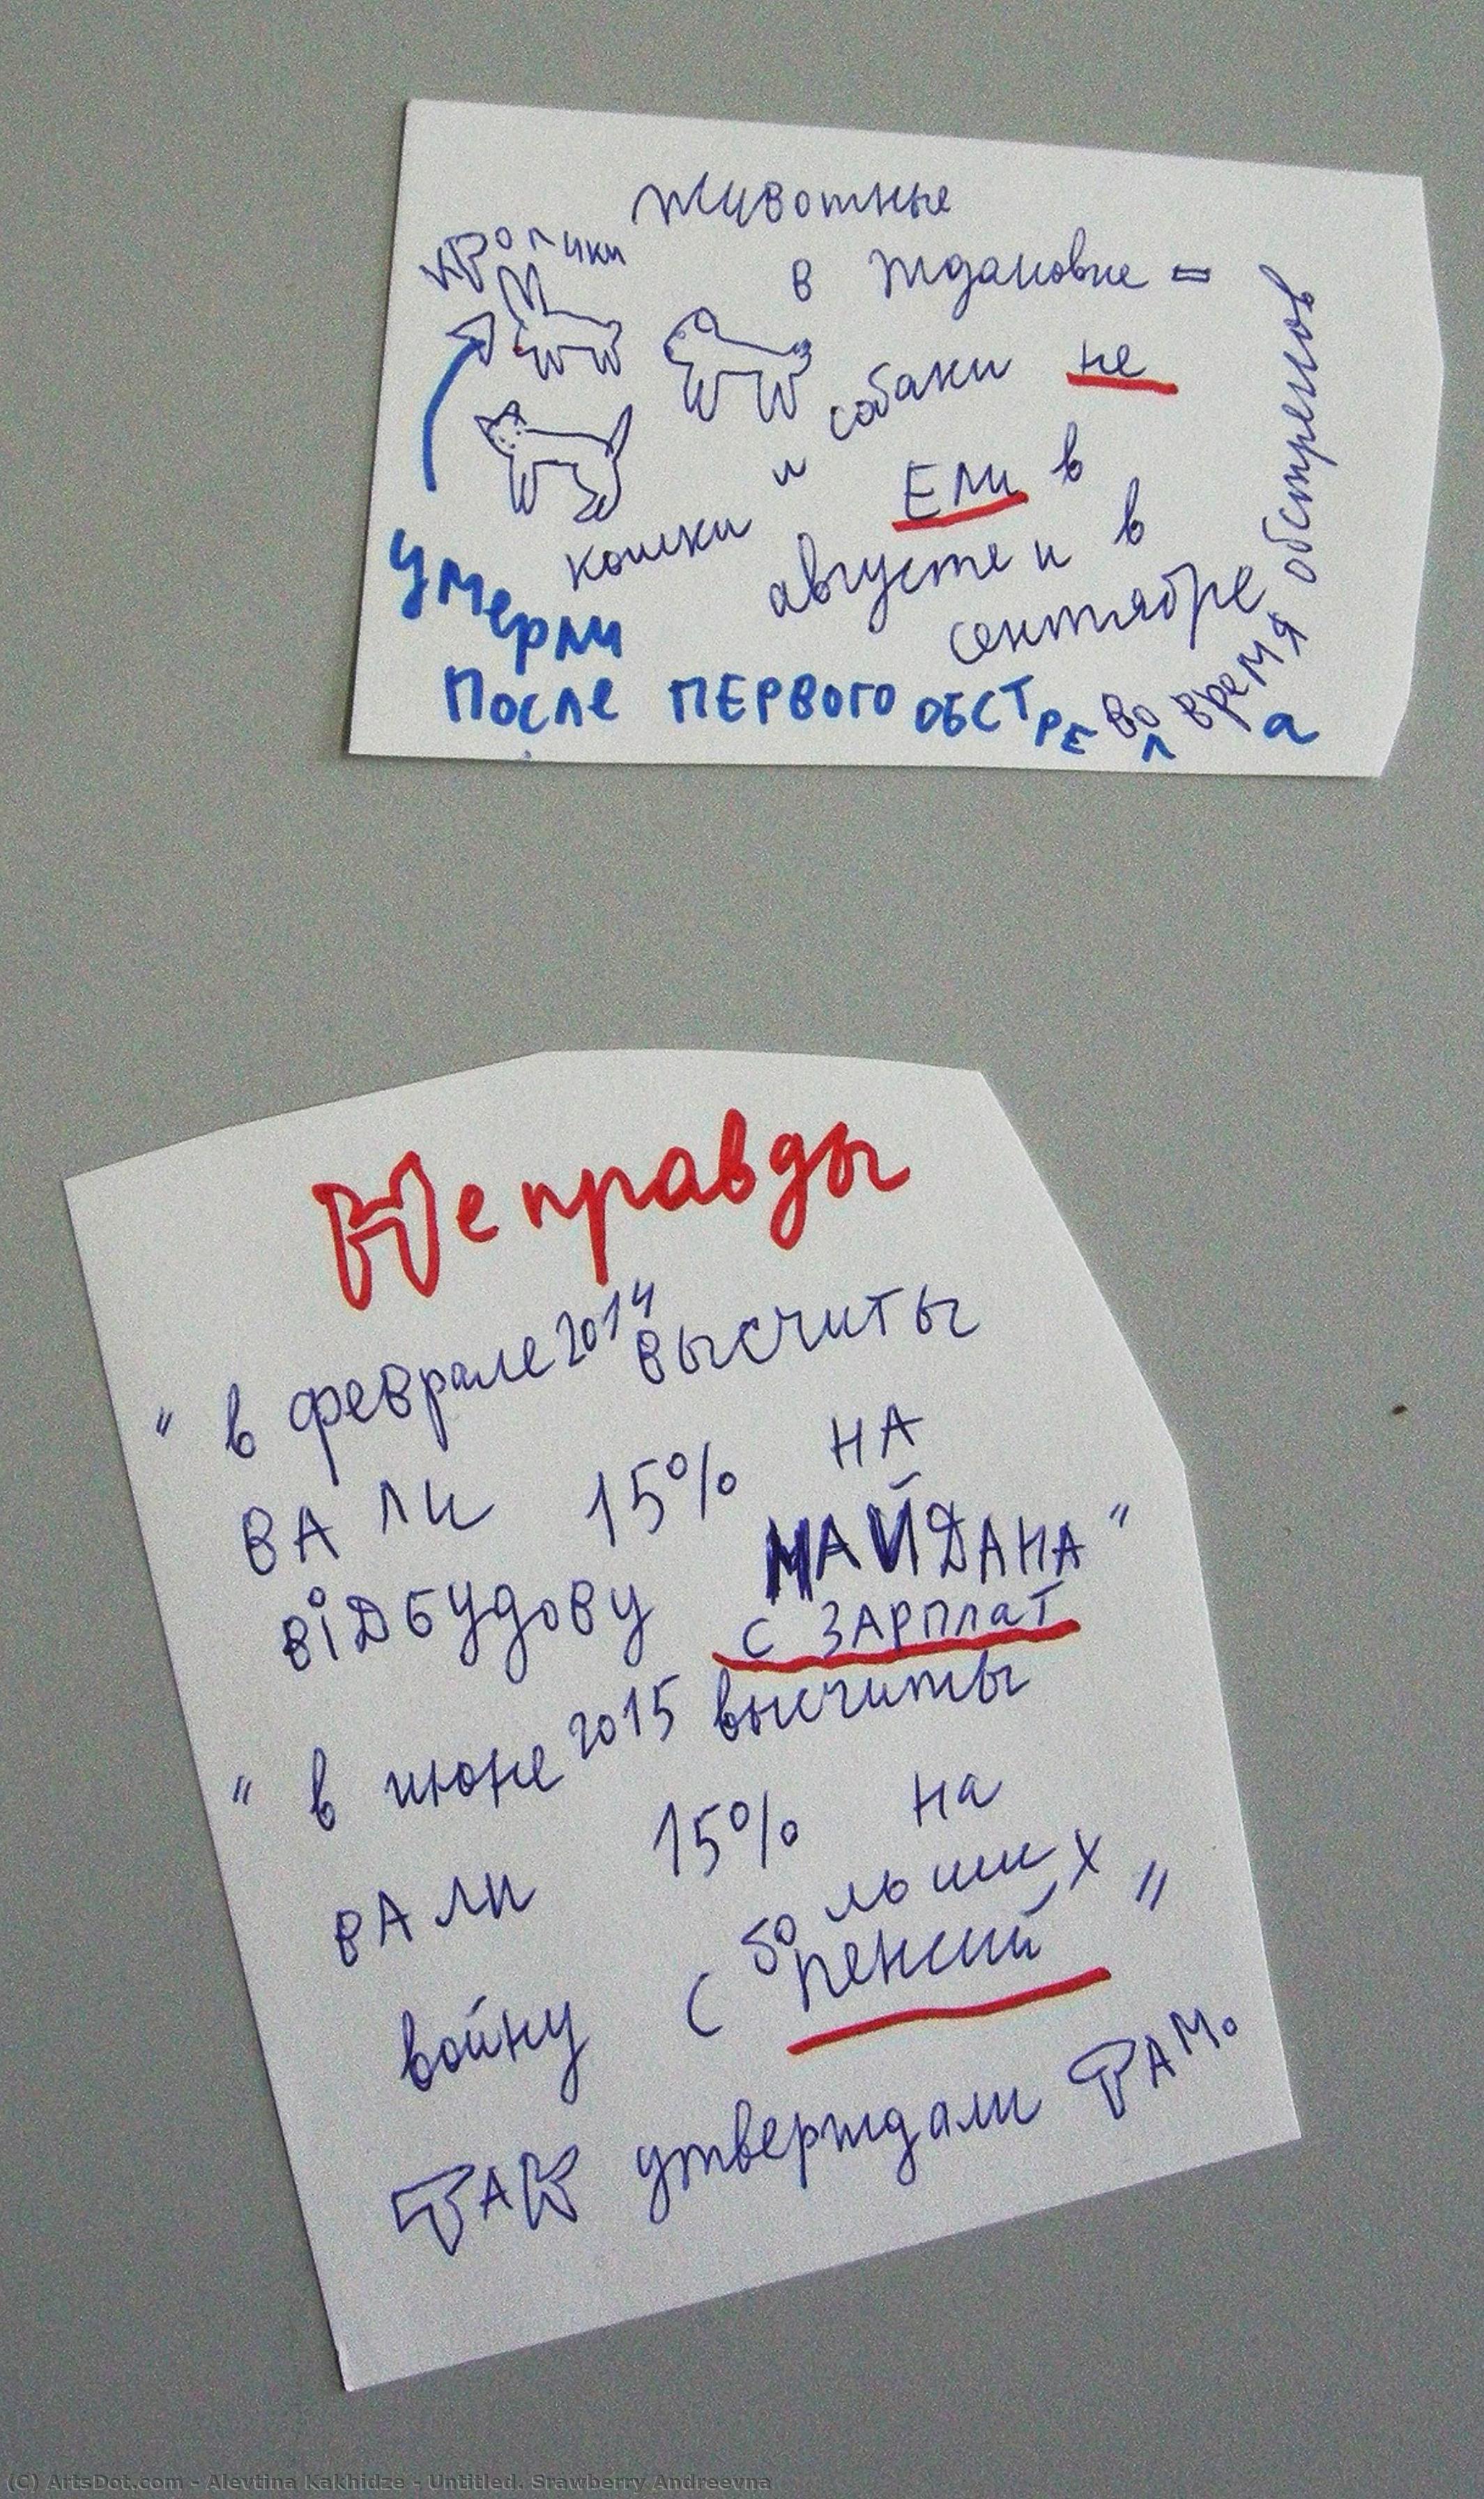 животные
кролики
в Ждановке =
собаки не
кошки и
Ели в
августе и в
сентябре
во время обстрелов
умерли
После первого обстрела
Неправды
" в феврале 2014 высчиты
вали 15% на
відбудову Майдана"
с зарплат
" в июне 2015 высчиты
вали 15% на
войну с больших
пенсий "
Так утверждали там.
(C) ArtsDot.com - Alevtina Kakhidze - Untitled. Srawberry Andreevna